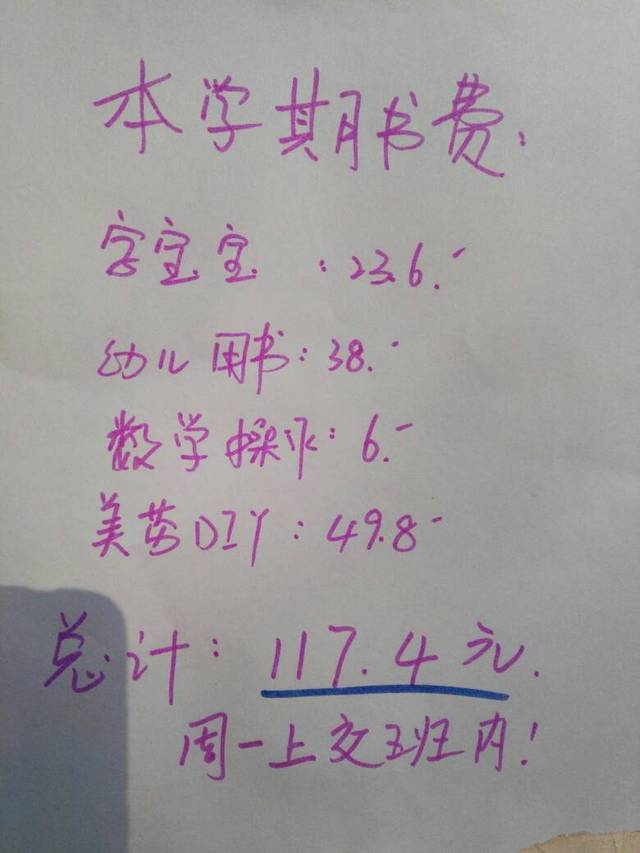 本学期书费:
字宝宝 :23.6.-
幼儿用书:38.-
数学操作:6.-
美劳DIY:49.8-
总计:117.4元.
周一上交五班内!